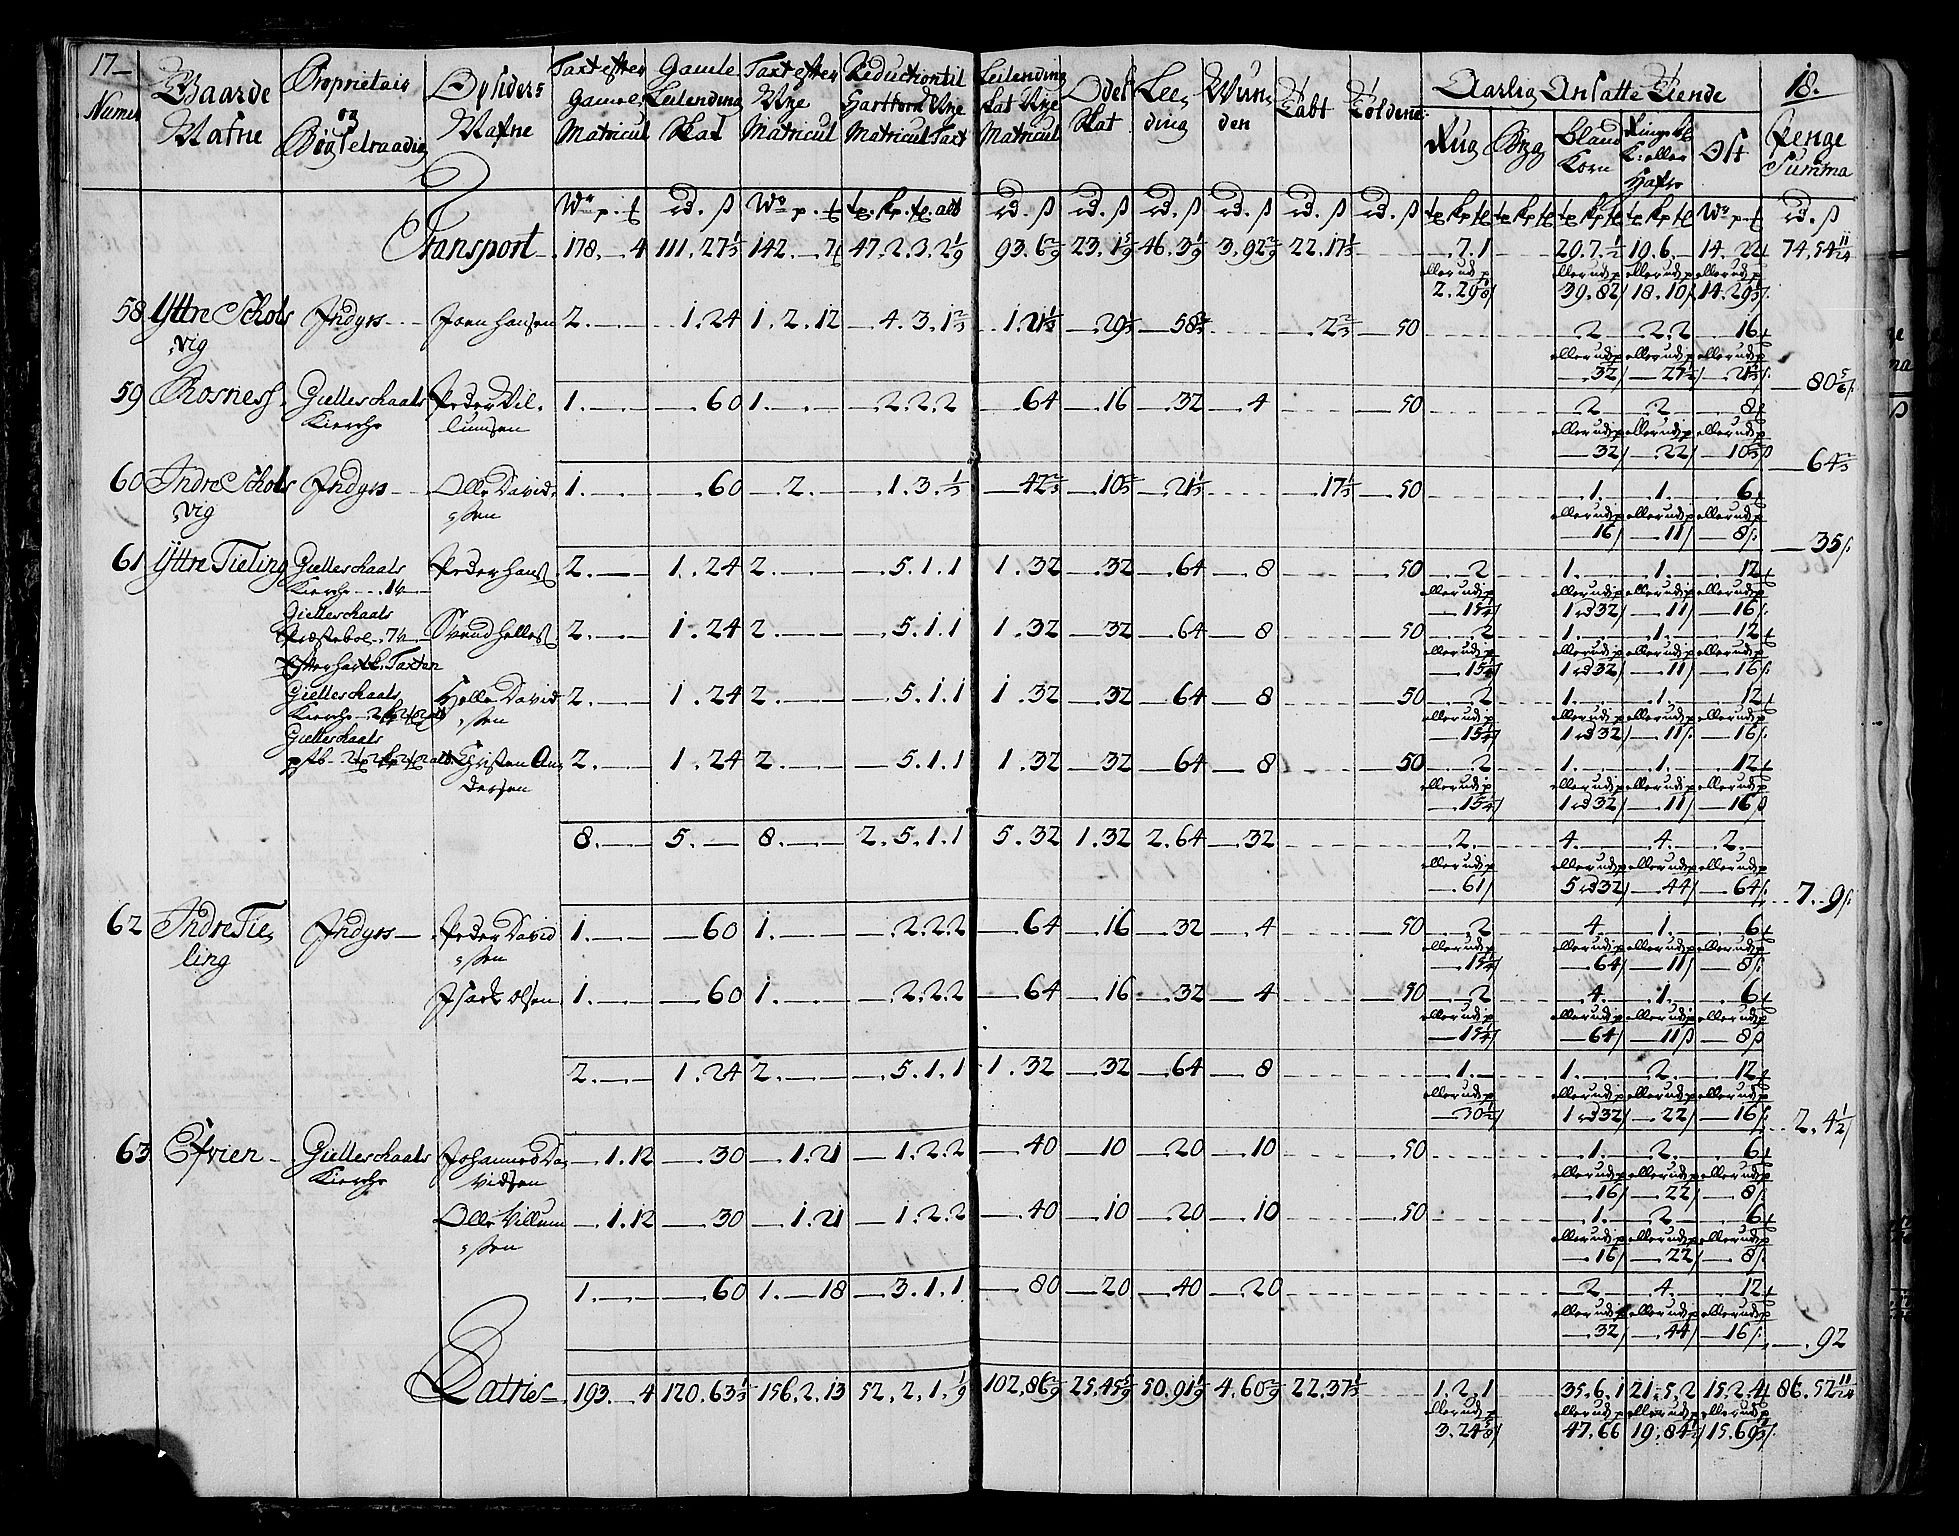 17
Numer | Gaarde Nafne | Proprietair og Bøgselraadig | Opsiders Nafne | Taxt efter Gamle Matricul | Gamle Leilending Skat | Taxt efter Nye Matricul | Reduction til Hartkorn Nye Matricul Taxt | Leilending Skat Nye Matricul | Odel Skat | Leeding | Wunden | Tabt | Toldene | Aarlig Ansatte Tiende | 18.
Rug | Byg | Bland Korn | Ringe bl. K: eller Hafre | Ost | Penge Summa
Transport | 178. 4 | 111. 27 1/3 | 142. 7 | 47. 2. 3. 2 1/9 | 93. 6 2/9 | 23. 1 5/9 | 46. 3 1/9 | 3. 92 2/9 | 22. 17 1/3 | 7. 1 | 29. 7. 1/2 | 19. 6. | 14. 22 | 74. 54 11/24
eller udj p | eller udj p | eller udj p | eller udj p
2. 29 5/8 | 39. 82 | 18. 10 | 14. 29 1/3
58 | Yttre Schols vig | Indgrs | Joen Hansen | 2. | 1. 24 | 1. 2. 12 | 4. 3. 1 2/3 | 1. 21 1/3 | 29 1/3 | 58 2/3 | 2 2/3 | 50 | 2 | 2. 2 | 16
eller udj p | eller udj p | eller udj p
32 | 27 1/2 | 21 1/3 | 80 5/6
59 | Rosness | Gielleschaals Kierche | Peder Villumsen | 1. | 60 | 1. | 2. 2. 2 | 64 | 16 | 32 | 4 | 50 | 2 | 2 | 8
eller udj p | eller udj p | eller udj p
32 | 22 | 10 2/3 | 64 2/3
60 | Indre Schols vig | Indgrs | Olle Davidssen | 1. | 60 | 2. | 1. 3. 1/3 | 42 2/3 | 10 2/3 | 21 1/3 | 17 1/3 | 50 | 1. | 1. | 6
eller udj p | eller udj p | eller udj p
16 | 11 | 8 | 35
61 | Yttre Tieling | Gielleschaals Kierche 1 | Peder Hans | 2. | 1. 24 | 2. | 5. 1. 1 | 1. 32 | 32 | 64 | 8 | 50 | 2 | 1. | 1. | 12
eller udj p | eller udj p | eller udj p | eller udj p
15 1/4 | 1 rd 32 | 11 | 16
Gielleschaals Præstebol 7 | Svend Helles | 2. | 1. 24 | 2. | 5. 1. 1 | 1. 32 | 32 | 64 | 8 | 50 | 2 | 1. | 1. | 12
Efter hartk. Taxten | eller udj p | eller udj p | eller udj p | eller udj p
15 1/4 | 1 rd 32 | 11 | 16
Gielleschaals Kierche | Helle Davidssen | 2. | 1. 24 | 2. | 5. 1. 1 | 1. 32 | 32 | 64 | 8 | 50 | 2 | 1. | 1. | 12
eller udj p | eller udj p | eller udj p | eller udj p
15 1/4 | 1 rd 32 | 11 | 16
Gielleschaals | Christen Andersen | 2. | 1. 24 | 2. | 5. 1. 1 | 1. 32 | 32 | 64 | 8 | 50 | 2 | 1. | 1. | 12
eller udj p | eller udj p | eller udj p | eller udj p
15 1/4 | 1 rd 32 | 11 | 16
8. | 5. | 8. | 2. 5. 1. 1 | 5. 32 | 1. 32 | 2. 64 | 32 | 2. | 4. | 4. | 2.
eller udj p | eller udj p | eller udj p | eller udj p
61 | 5 rd 32 | 44 | 64 | 7. 9
62 | Indre Tieling | Indgrs | Peder Davidssen | 1. | 60 | 1. | 2. 2. 2 | 64 | 16 | 32 | 4 | 50 | 2 | 4. | 1. | 6
eller udj p | eller udj p | eller udj p | eller udj p
15 1/4 | 64 | 11 | 8
Isach Olsen | 1. | 60 | 1. | 2. 2. 2 | 64 | 16 | 32 | 4 | 50 | 2 | 4. | 1. | 6
eller udj p | eller udj p | eller udj p | eller udj p
15 1/4 | 64 | 11 | 8
2. | 1. 24 | 2. | 5. 1. 1 | 1. 32 | 32 | 64 | 8 | 1. | 1. | 2. | 12
eller udj p | eller udj p | eller udj p | eller udj p
30 1/2 | 1 rd 32 | 22 | 16 | 2. 4 1/2
63 | Efrien | Gielleschaals Kierche | Johannes Davidsen | 1. 12 | 30 | 1. 21 | 1. 2. 2 | 40 | 10 | 20 | 10 | 50 | 1. | 2. | 6
eller udj p | eller udj p | eller udj p
16 | 22 | 8
Olle Villumssen | 1. 12 | 30 | 1. 21 | 1. 2. 2 | 40 | 10 | 20 | 10 | 50 | 1. | 2 | 6
eller udj p | eller udj p | eller udj p
16 | 22 | 8
1. | 60 | 1. 18 | 3. 1. 1 | 80 | 20 | 40 | 20 | 2 | 4. | 12
eller udj p | eller udj p | eller udj p
32 | 44 | 16 | 92
Latties | 193. 4 | 120. 63 1/3 | 156. 2. 13 | 52. 2. 1. 1/9 | 102. 86 2/9 | 25. 45 5/9 | 50. 91 1/9 | 4. 60 2/9 | 22. 37 1/3 | 1. 2. 1 | 35. 6. 1 | 21. 5. 2 | 15. 2. 4 | 86. 52 11/24
eller udj p | eller udj p | eller udj p | eller udj p
3. 24 3/8 | 47. 66 | 19. 84 1/2 | 15. 69 1/3